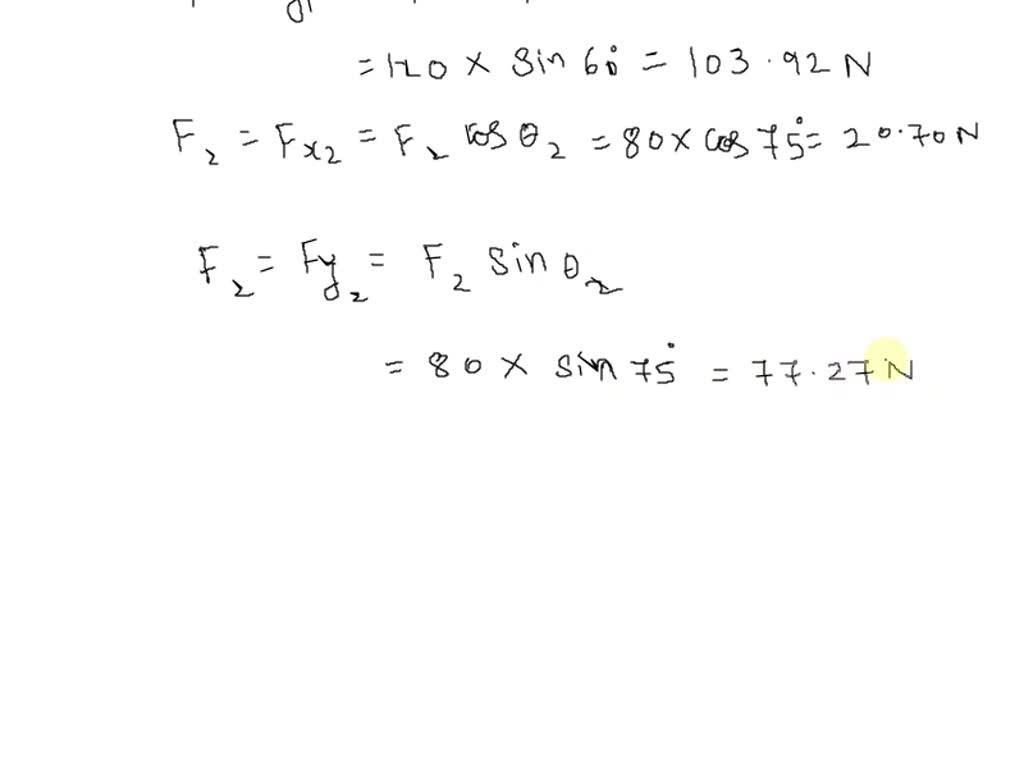 = 120 × sin 60° = 103.92 N
F₂ = Fx₂ = F₂ cos θ₂ = 80 × cos 75° = 20.70 N
F₂ = Fy₂ = F₂ sin θ₂
= 80 × sin 75° = 77.27 N